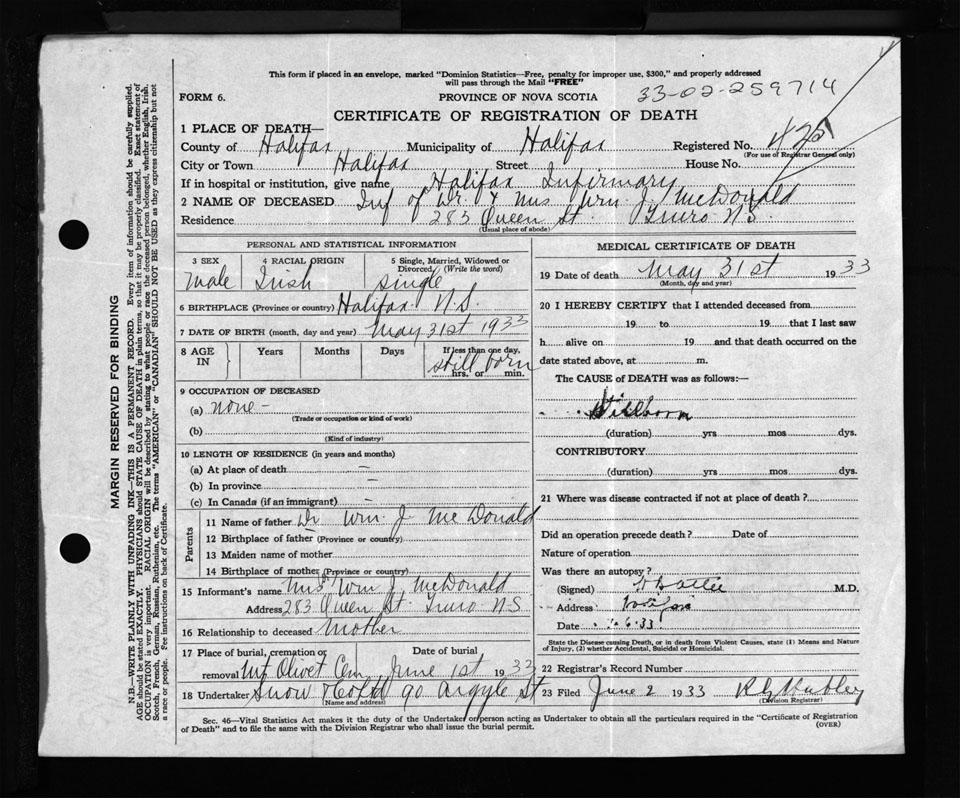 This form if placed in an envelope, marked "Dominion Statistics—Free, penalty for improper use, $300," and properly addressed
will pass through the Mail "FREE"
FORM 6.
PROVINCE OF NOVA SCOTIA
33-02-259714
CERTIFICATE OF REGISTRATION OF DEATH
1 PLACE OF DEATH—
County of Halifax Municipality of Halifax Registered No.
(For use of Registrar General only)
City or Town Halifax Street House No.
If in hospital or institution, give name Halifax Infirmary
2 NAME OF DECEASED Inf of Dr. & Mrs Wm. J. McDonald
Residence 283 Queen St. Truro N.S
(Usual place of abode)
PERSONAL AND STATISTICAL INFORMATION
3 SEX 4 RACIAL ORIGIN 5 Single, Married, Widowed or
Divorced, (Write the word)
Male Irish Single
6 BIRTHPLACE (Province or country) Halifax N.S.
7 DATE OF BIRTH (month, day and year) May 31st 1933
8 AGE IN Years Months Days If less than one day,
still born
hrs. or min.
9 OCCUPATION OF DECEASED
(a) none -
(Trade or occupation or kind of work)
(b)
(Kind of industry)
10 LENGTH OF RESIDENCE (in years and months)
(a) At place of death —
(b) In province —
(c) In Canada (if an immigrant) —
Parents
11 Name of father Dr Wm. J McDonald
12 Birthplace of father (Province or country)
13 Maiden name of mother
14 Birthplace of mother (Province or country)
15 Informant's name Mrs Wm J. McDonald
Address 283 Queen St. Truro N.S
16 Relationship to deceased Mother
17 Place of burial, cremation or removal Date of burial
Mt Olivet Cem June 1st 1933
18 Undertaker Snow & Co Ltd 90 Argyle St
(Name and address)
MEDICAL CERTIFICATE OF DEATH
19 Date of death May 31st 1933
(Month, day and year)
20 I HEREBY CERTIFY that I attended deceased from
19 to 19 that I last saw
h alive on 19 and that death occurred on the
date stated above, at m.
The CAUSE of DEATH was as follows:—
Stillborn
(duration) yrs mos dys.
CONTRIBUTORY
(duration) yrs mos dys.
21 Where was disease contracted if not at place of death ?
Did an operation precede death ? Date of
Nature of operation
Was there an autopsy ?
(Signed) M.D.
Address Halifax
Date 6.33.
State the Disease causing Death, or in death from Violent Causes, state (1) Means and Nature
of Injury, (2) whether Accidental, Suicidal or Homicidal.
22 Registrar's Record Number
23 Filed June 2 1933
(Division Registrar)
Sec. 46—Vital Statistics Act makes it the duty of the Undertaker or person acting as Undertaker to obtain all the particulars required in the "Certificate of Registration
of Death" and to file the same with the Division Registrar who shall issue the burial permit.
(OVER)
MARGIN RESERVED FOR BINDING
N.B.—WRITE PLAINLY WITH UNFADING INK—THIS IS A PERMANENT RECORD. Every item of information should be carefully supplied.
AGE should be stated EXACTLY. PHYSICIANS should STATE CAUSE OF DEATH in plain terms, so that it may be properly classified. Exact statement of
OCCUPATION is very important. RACIAL ORIGIN will be described by stating to what people or race the deceased person belonged, whether English, Irish,
Scotch, French, German, Russian, Ruthenian, etc. The terms "AMERICAN" or "CANADIAN" SHOULD NOT BE USED as they express citizenship but not
a race or people. Fee instructions on back of Certificate.